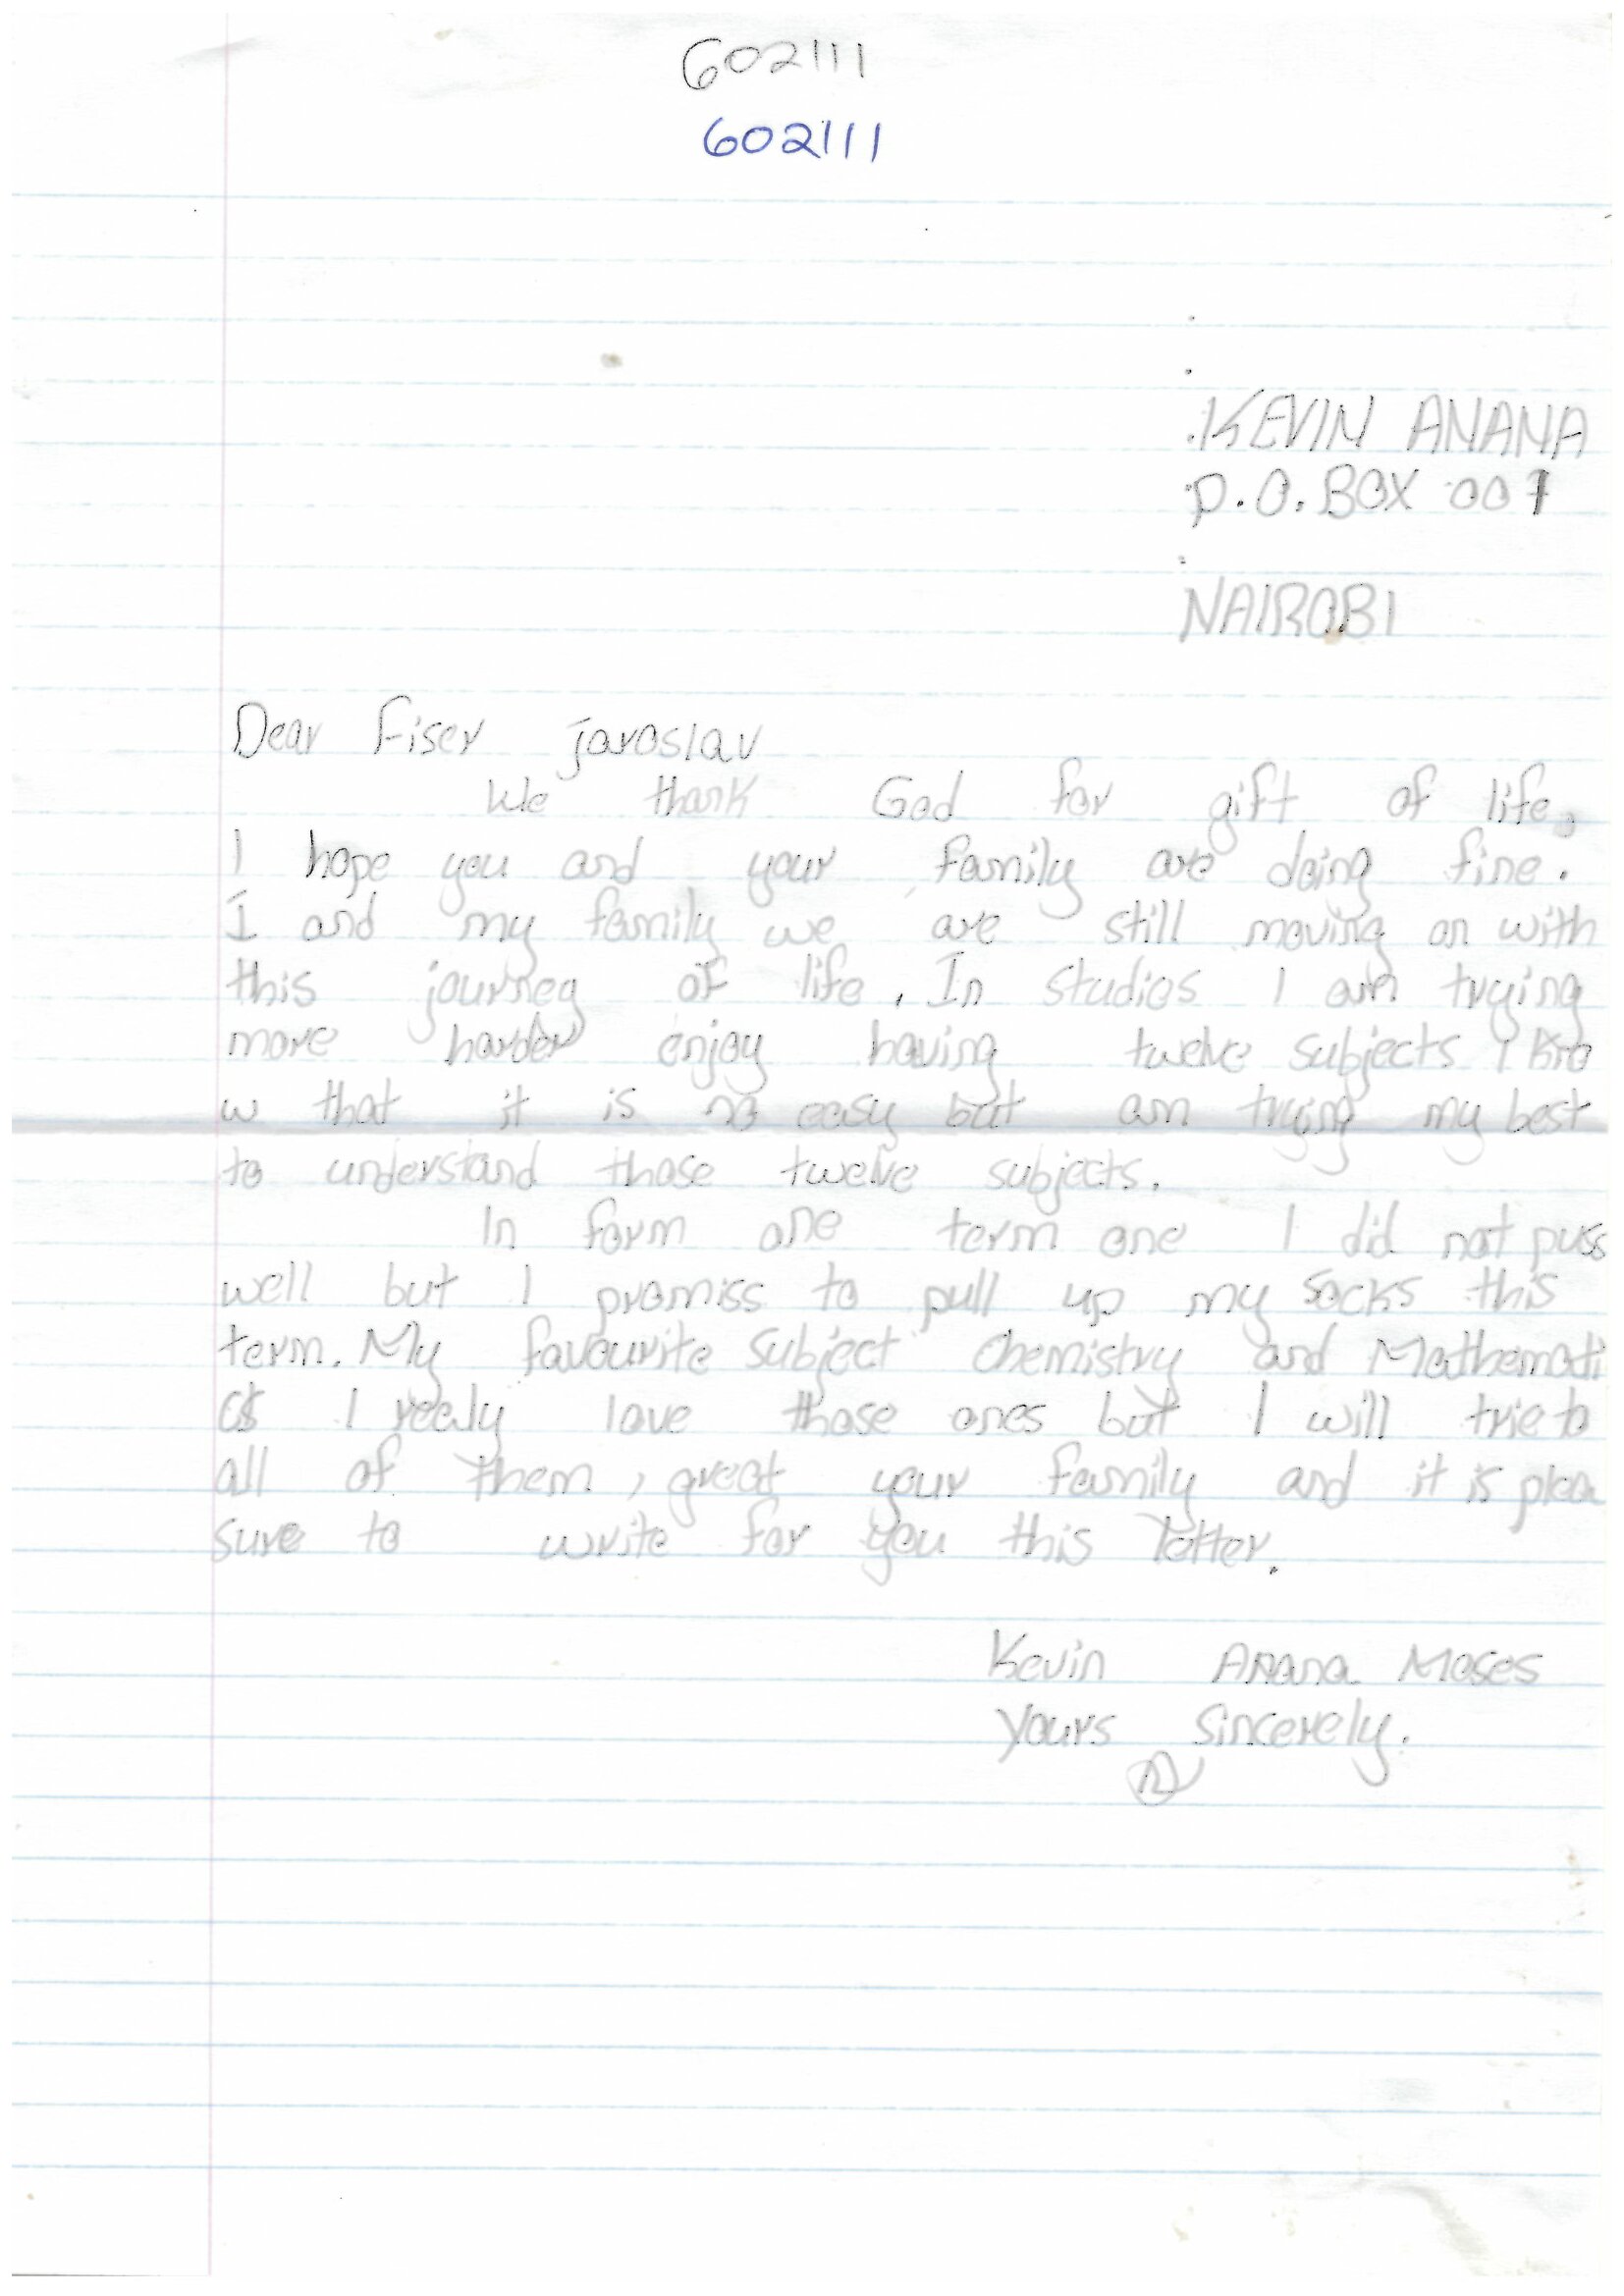 602111
602111
KEVIN ANANA
P.O. BOX 001
NAIROBI
Dear Fiser jaroslav
We thank God for gift of life,
I hope you and your family are doing fine.
I and my family we are still moving on with
this journey of life. In studies I am trying
more harder enjoy having twelve subjects I kno
w that it is no easy but am trying my best
to understand those twelve subjects.
In form one term one I did not puss
well but I promiss to pull up my socks this
term. My favourite subject Chemistry and Mathemati
cs I realy love those ones but I will trie to
all of them, great your family and it is plea
sure to write for you this letter.
Kevin Anana Moses
Yours Sincerely.